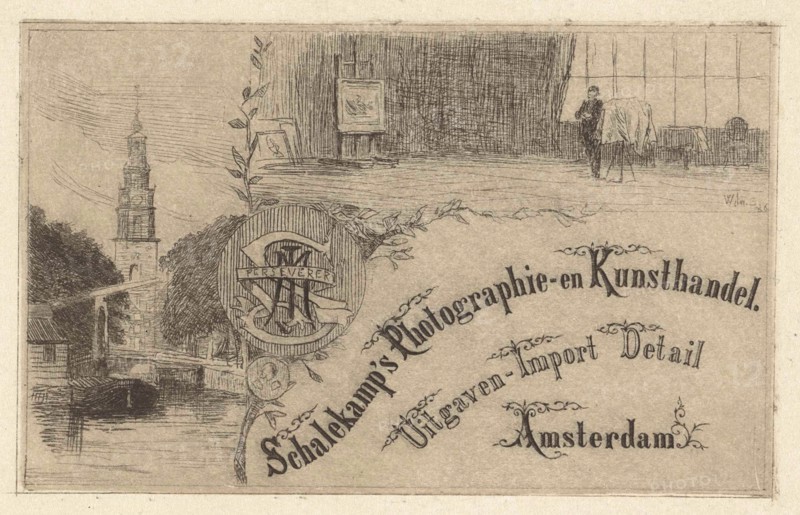 PERSEVERER
Schalekamp's Photographie-en Kunsthandel.
Uitgaven-Import Detail
Amsterdam